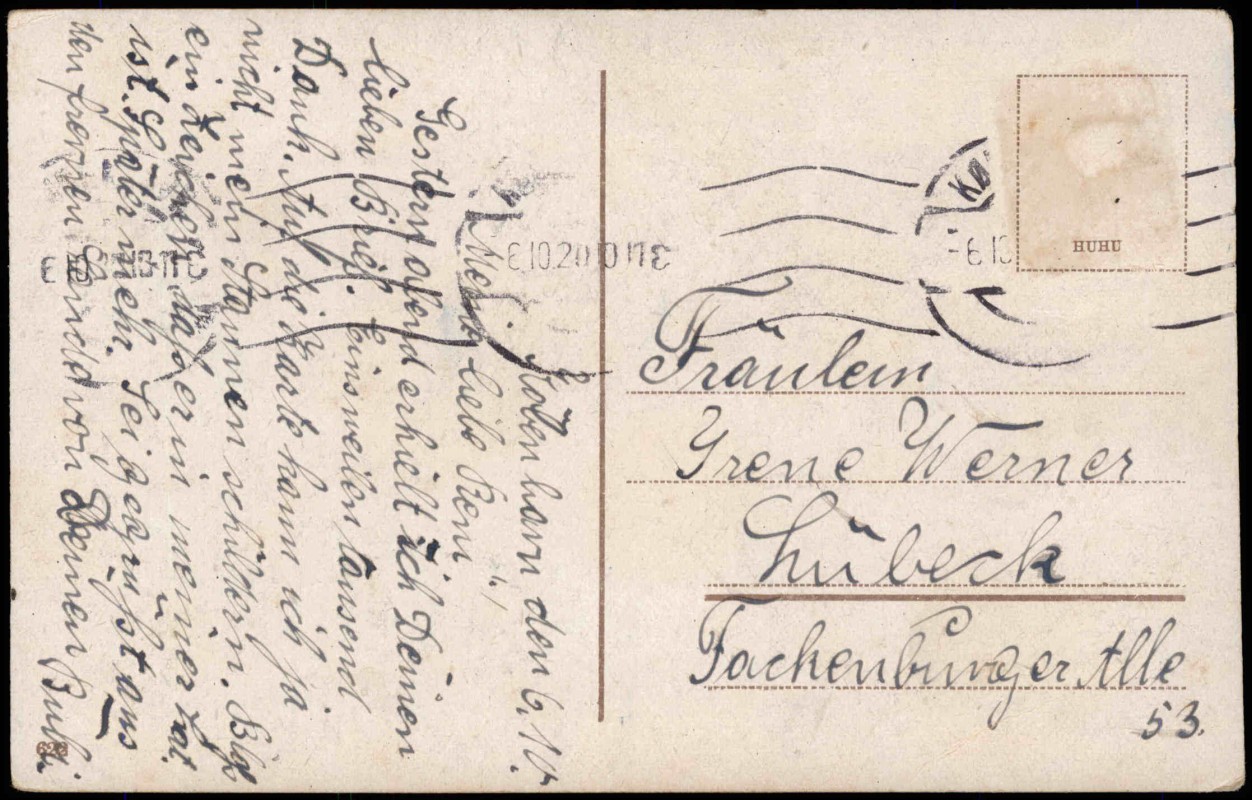 Kobenhavn den 6. 10.
Mein liebe Reni!
Gestern abend erhielt ich Deinen
lieben Brief. Einsweilen tausend
Dank. Auf die Karte kann ich ja
nicht mein Staunen schildern.
ein Zeichen daß er in meiner
ist. Später mehr. Sei gegrüßt aus
den fremen von Deinen
6.10.20 10-11 E
KØ
-6.10
HUHU
Fräulein
Irene Werner
Lübeck
Fackenburger Alle
53.
622